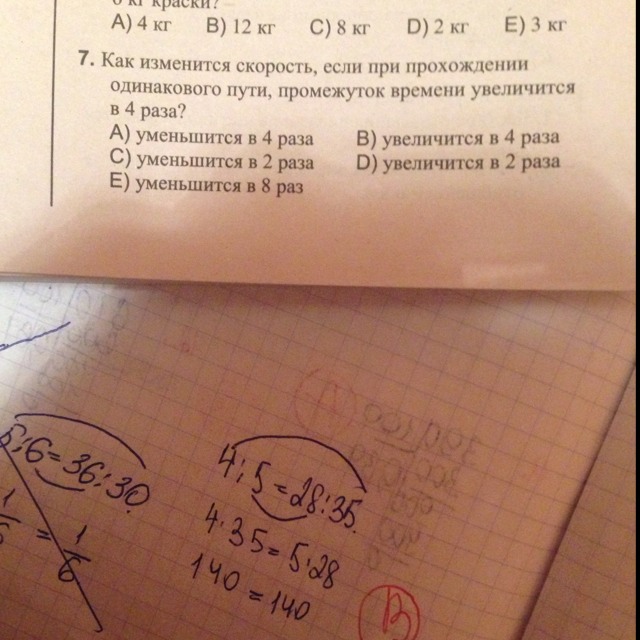 6 кг краски?
A) 4 кг B) 12 кг C) 8 кг D) 2 кг E) 3 кг
7. Как изменится скорость, если при прохождении
одинакового пути, промежуток времени увеличится
в 4 раза?
A) уменьшится в 4 раза B) увеличится в 4 раза
C) уменьшится в 2 раза D) увеличится в 2 раза
E) уменьшится в 8 раз
5:6=36:30
= 1/6
4:5=28:35
4·35=5·28
140=140
B